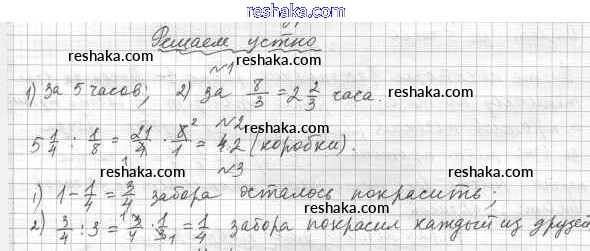 www.reshaka.com
Решаем устно
reshaka.com reshaka.com
№1
1) за 5 часов; 2) за 8/3 = 2 2/3 часа.
reshaka.com reshaka.com
№2
5 1/4 : 1/8 = 21/4 · 8/1 = 42 (коробки).
reshaka.com
№3
1) 1 - 1/4 = 3/4 забора осталось покрасить;
reshaka.com reshaka.com
2) 3/4 : 3 = 3/4 · 1/3 = 1/4 забора покрасил каждый из друзей
www.reshaka.com